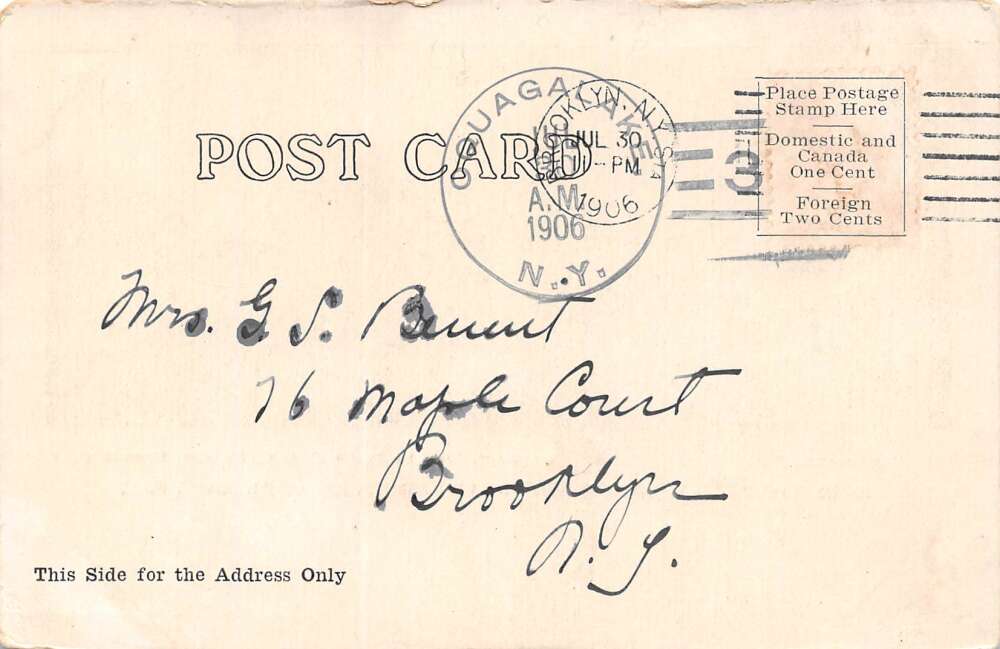 POST CARD
BROOKLYN, N.Y.
JUL 30
11-PM
1906
A.M.
1906
N.Y.
3
Place Postage
Stamp Here
Domestic and
Canada
One Cent
Foreign
Two Cents
Mrs. G. S. Bennett
76 Maple Court
Brooklyn
N. Y.
This Side for the Address Only